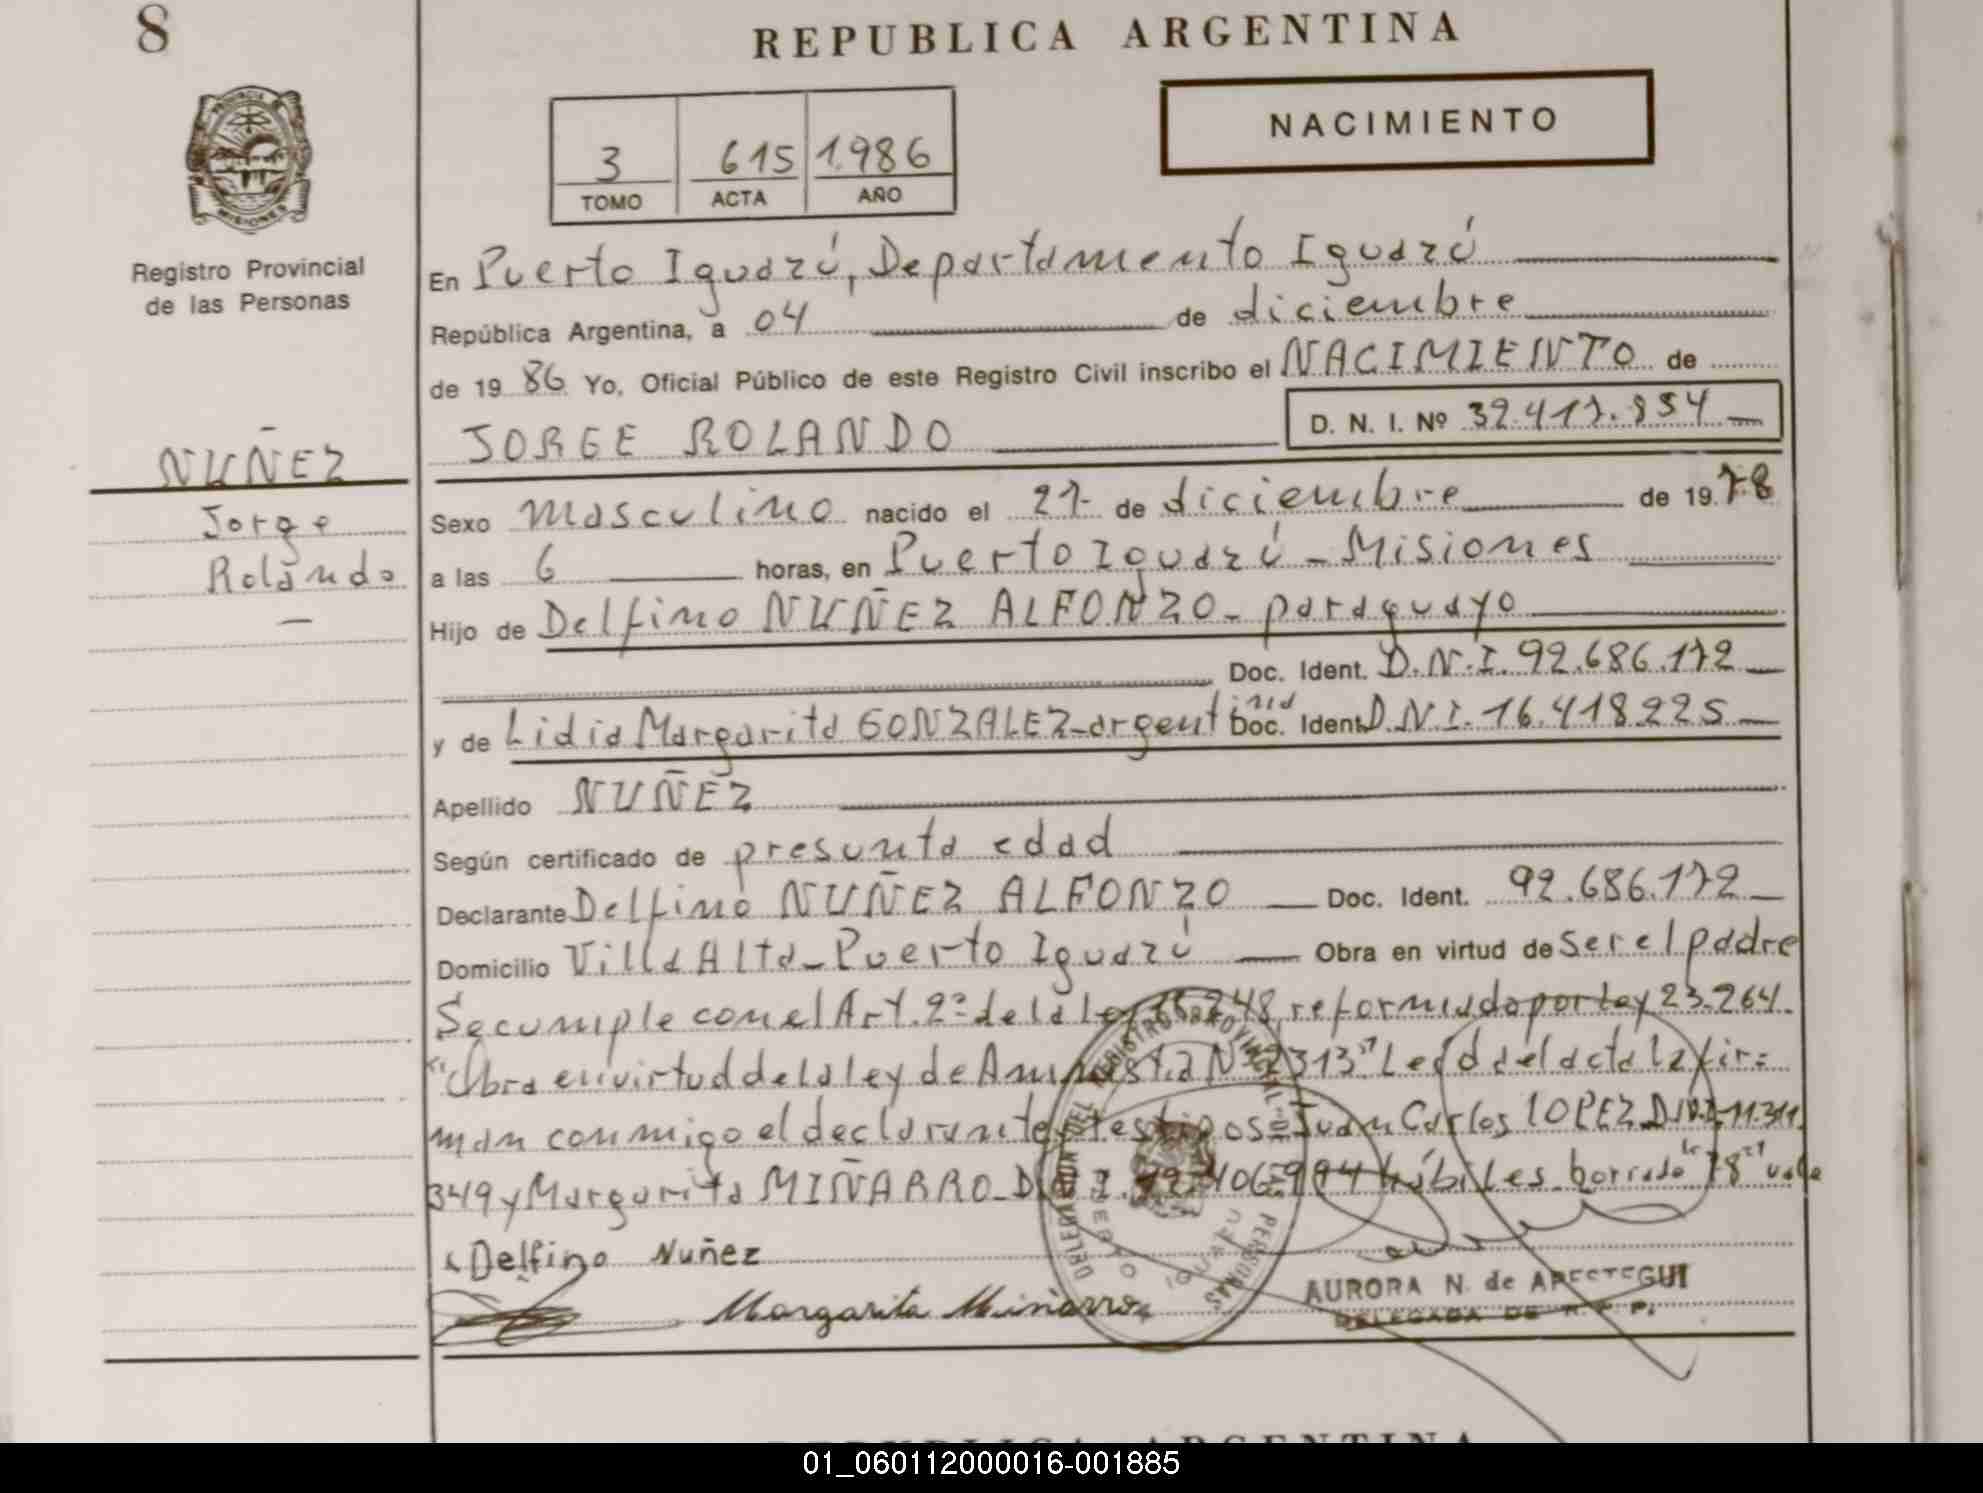 8
REPUBLICA ARGENTINA
NACIMIENTO
3 615 1.986
TOMO ACTA AÑO
PROVINCIA DE
MISIONES
Registro Provincial
de las Personas
En Puerto Iguazú, Departamento Iguazú
República Argentina, a 04 de diciembre
de 19 86 Yo, Oficial Público de este Registro Civil inscribo el NACIMIENTO de
JORGE ROLANDO D. N. I. Nº 32.417.854
NUÑEZ
Jorge
Rolando
Sexo masculino nacido el 27 de diciembre de 19 78
a las 6 horas, en Puerto Iguazú - Misiones
Hijo de Delfino NUÑEZ ALFONZO - paraguayo
Doc. Ident. D.N.I. 92.686.172
y de Lidia Margarita GONZALEZ - argentina Doc. Ident. D.N.I. 16.418.225
Apellido NUÑEZ
Según certificado de presunta edad
Declarante Delfino NUÑEZ ALFONZO Doc. Ident. 92.686.172
Domicilio Villa Alta - Puerto Iguazú Obra en virtud de ser el padre
Se cumple con el Art. 2º de la ley 18.248, reformada por ley 23.264.
"Obra en virtud de la ley de Amnistia Nº 2313" Leida del acta la fir=
man conmigo el declarante y testigos = Juan Carlos LOPEZ D.N.I. 11.311.
349 y Margarita MIÑARRO - D.N.I. 994 hábiles - borrado "78" vale
Delfino Nuñez
Margarita Miñarro
DELEGACION DEL REGISTRO PROVINCIAL DE PERSONAS
PUERTO IGUAZU
AURORA N. de APESTEGUI
DELEGADA DE R. P. P.
REPUBLICA ARGENTINA
01_060112000016-001885